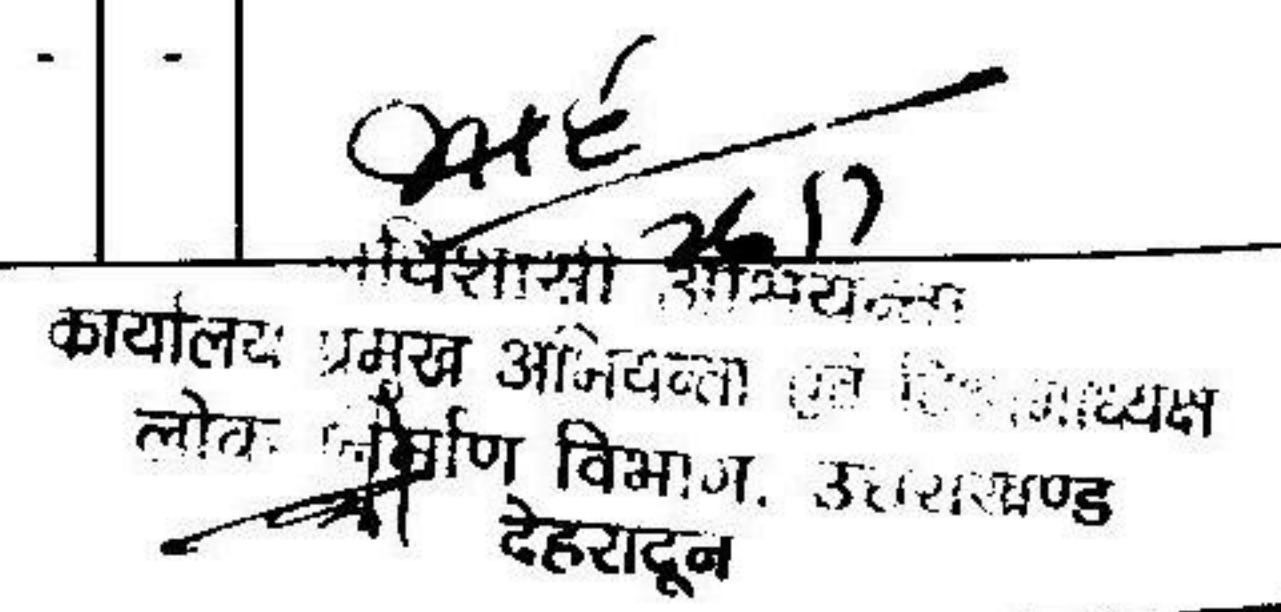 - -
26/7
अधिशासी अभियन्ता
कार्यालय प्रमुख अभियन्ता एवं विभागाध्यक्ष
लोक निर्माण विभाग, उत्तराखण्ड
देहरादून